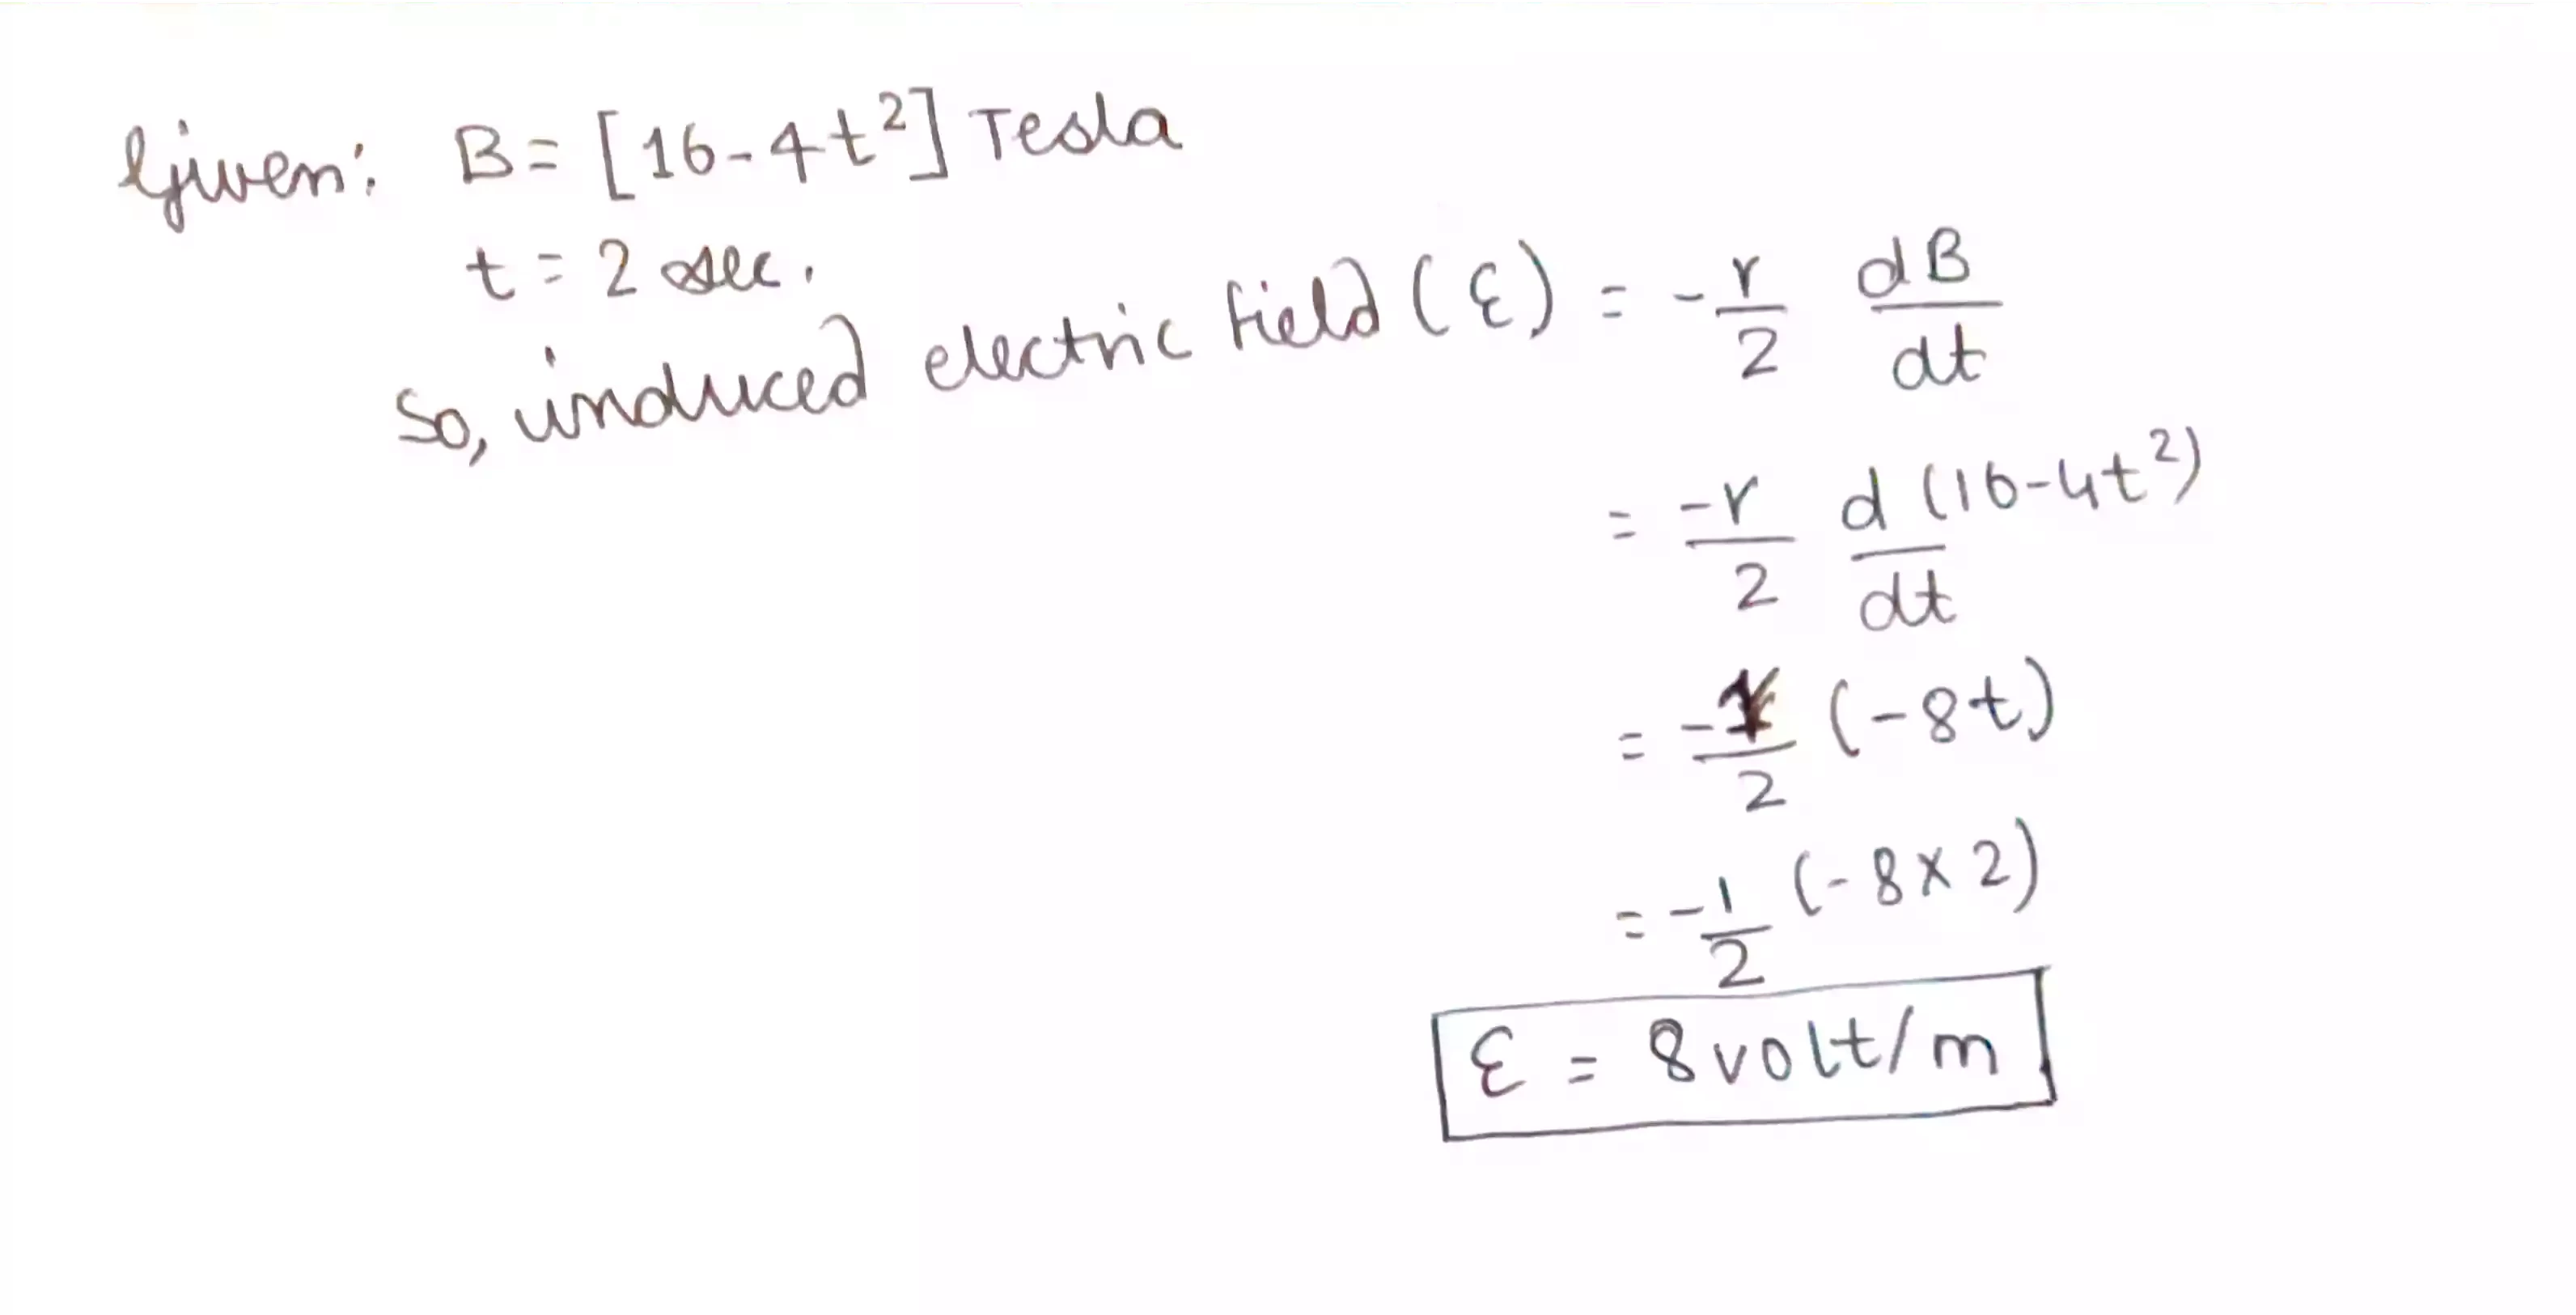 Given: B = [16-4t²] Tesla
t = 2 sec.
So, induced electric field (ε) = -r/2 dB/dt
= -r/2 d/dt (16-4t²)
= -1/2 (-8t)
= -1/2 (-8×2)
ε = 8 volt/m